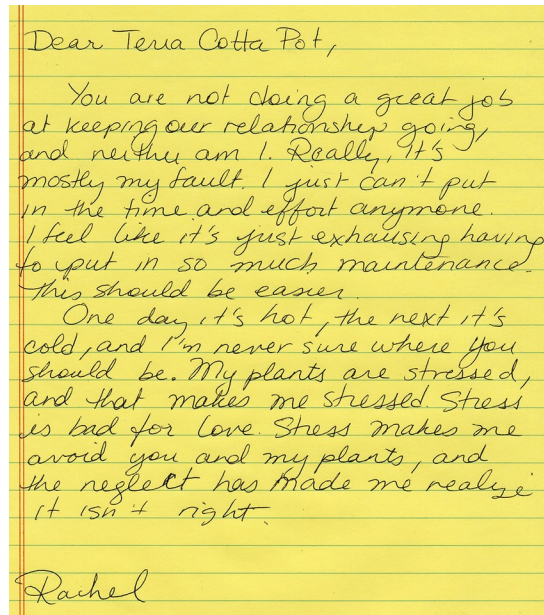 Dear Terra Cotta Pot,
You are not doing a great job
at keeping our relationship going,
and neither am I. Really, it's
mostly my fault. I just can't put
in the time and effort anymore.
I feel like it's just exhausing having
to put in so much maintenance.
This should be easier.
One day it's hot, the next it's
cold, and I'm never sure where you
should be. My plants are stressed,
and that makes me stressed. Stress
is bad for love. Stress makes me
avoid you and my plants, and
the neglect has made me realize
it isn't right.
Rachel